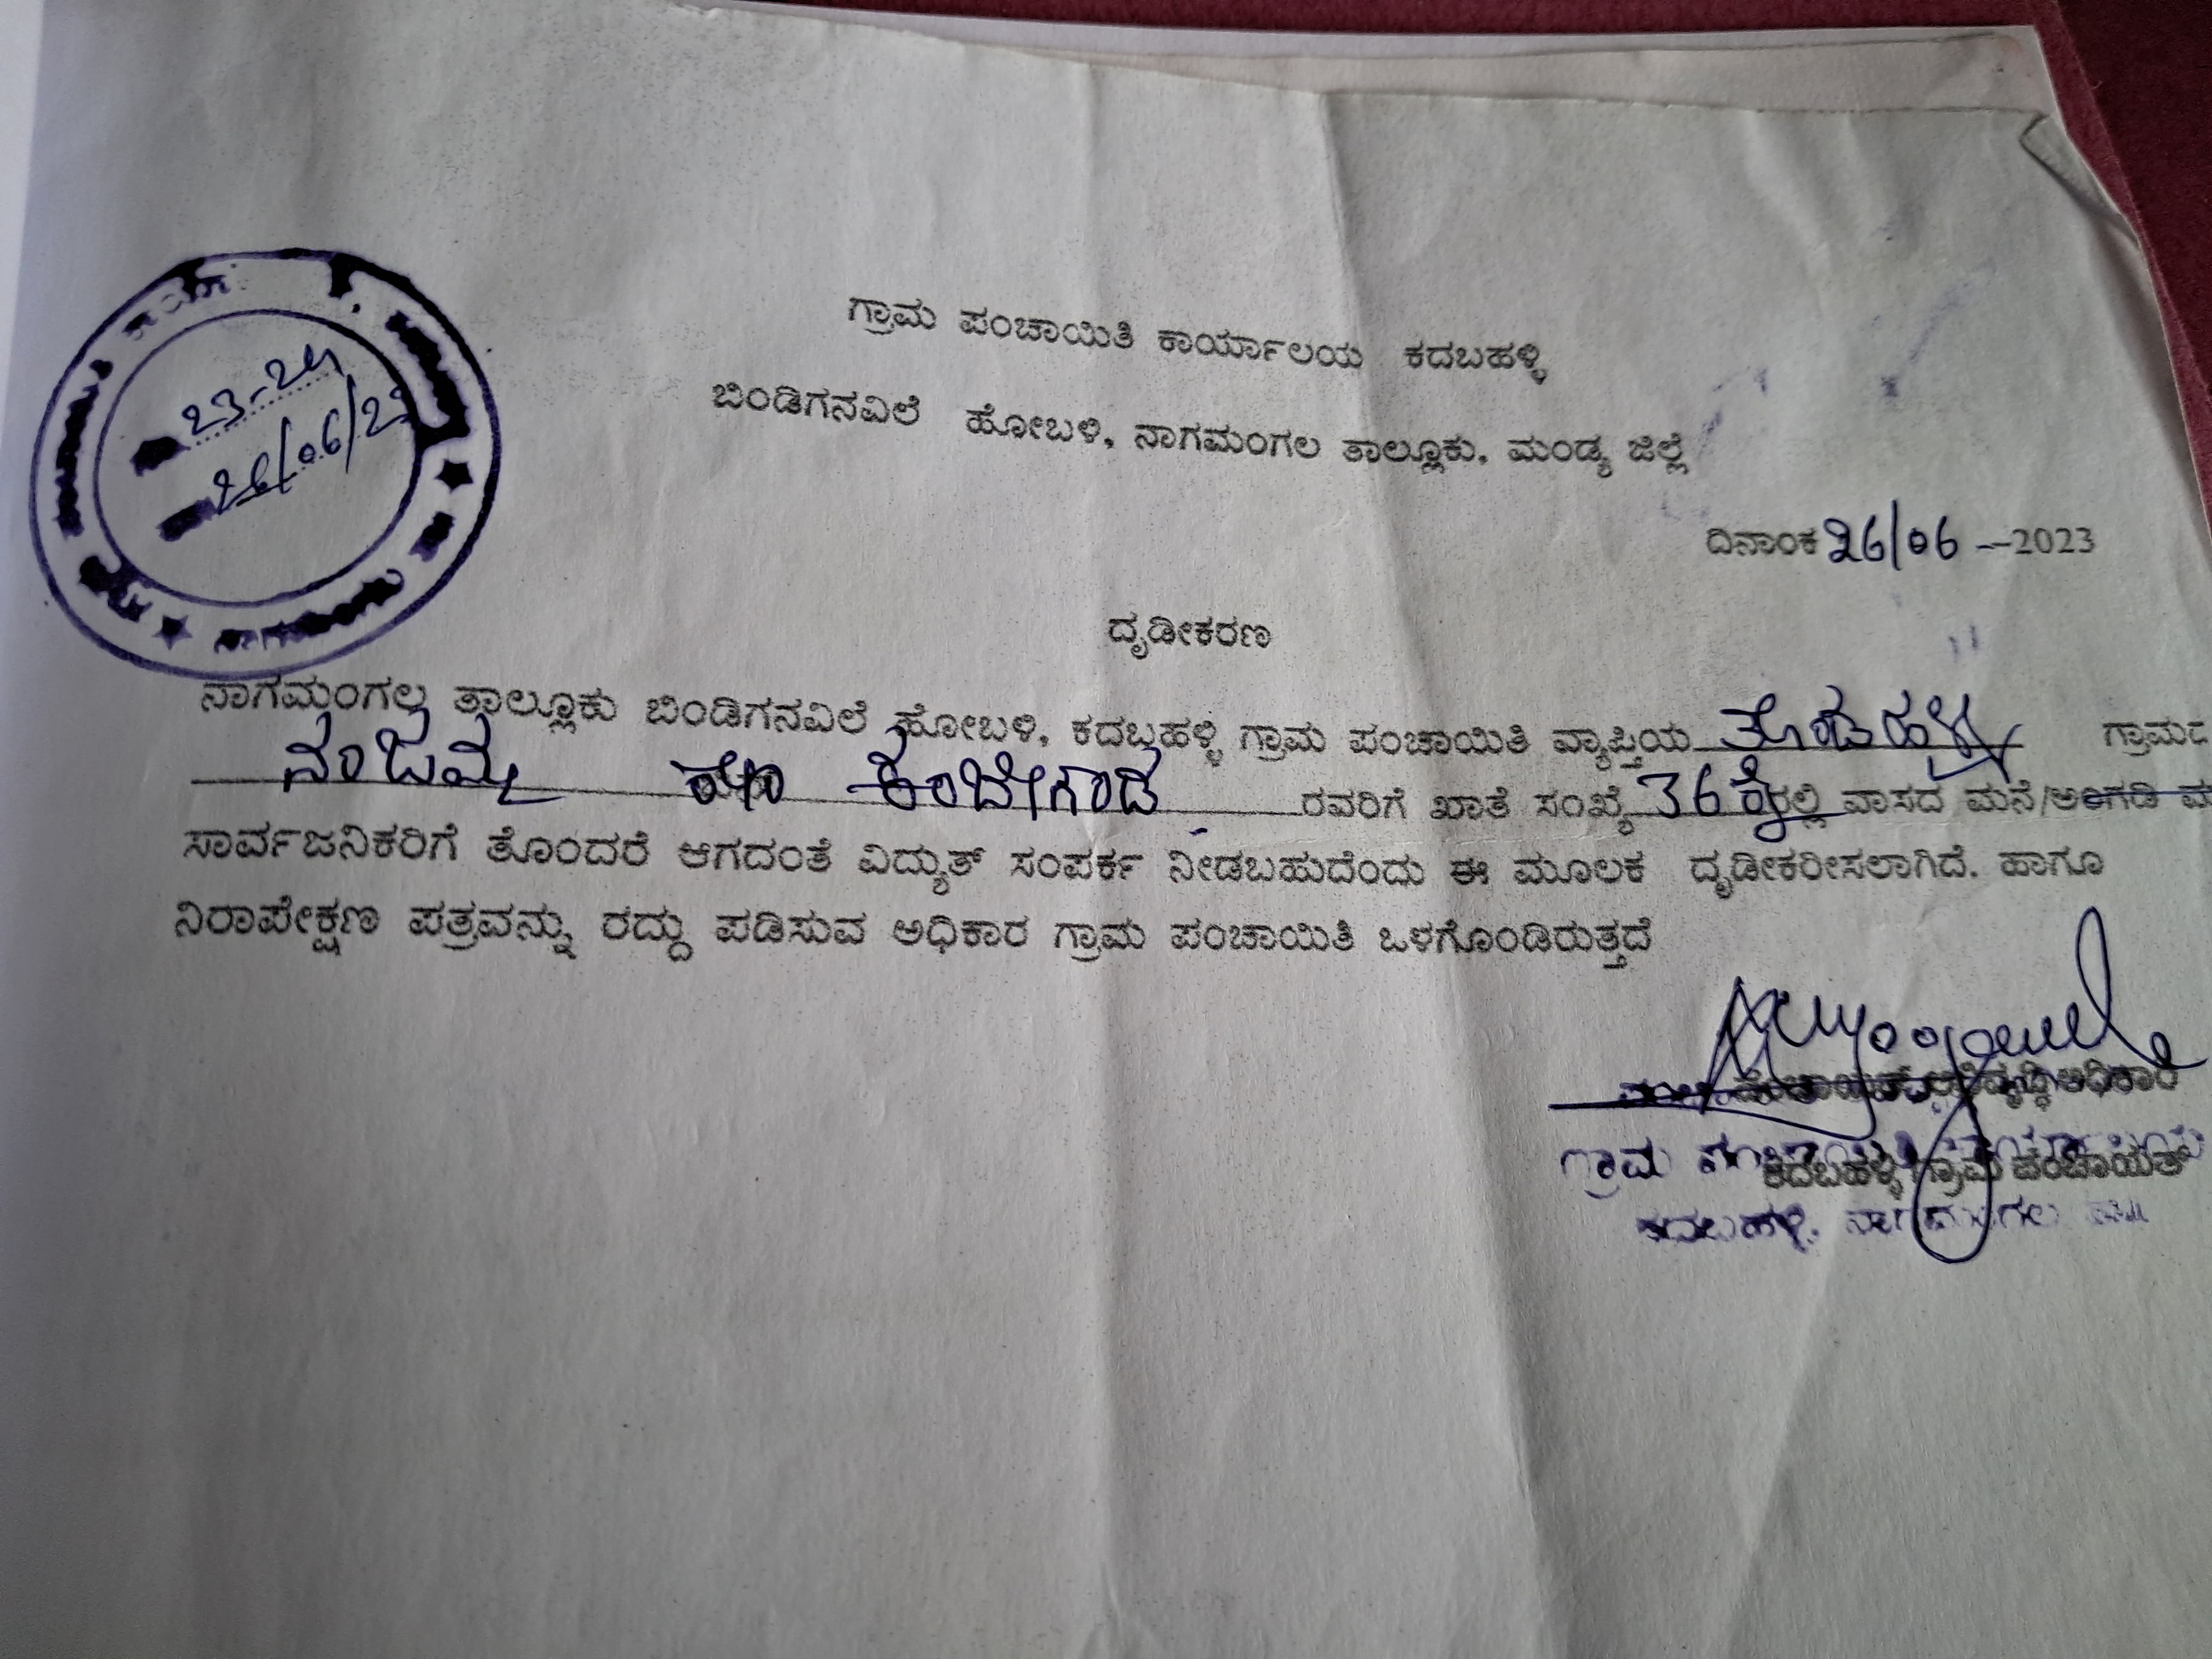 23-24
26/06/23
ಗ್ರಾಮ ಪಂಚಾಯಿತಿ ಕಾರ್ಯಾಲಯ ಕದಬಹಳ್ಳಿ
ಬಿಂಡಿಗನವಿಲೆ ಹೋಬಳಿ, ನಾಗಮಂಗಲ ತಾಲ್ಲೂಕು, ಮಂಡ್ಯ ಜಿಲ್ಲೆ
ದಿನಾಂಕ 26/06 -2023
ದೃಡೀಕರಣ
ನಾಗಮಂಗಲ ತಾಲ್ಲೂಕು ಬಿಂಡಿಗನವಿಲೆ ಹೋಬಳಿ, ಕದಬಹಳ್ಳಿ ಗ್ರಾಮ ಪಂಚಾಯಿತಿ ವ್ಯಾಪ್ತಿಯ
ನಂಜಮ್ಮ ರವರಿಗೆ ಖಾತೆ ಸಂಖ್ಯೆ 36 ರಲ್ಲಿ ವಾಸದ ಮನೆ/ಅಂಗಡಿ
ಸಾರ್ವಜನಿಕರಿಗೆ ತೊಂದರೆ ಆಗದಂತೆ ವಿದ್ಯುತ್ ಸಂಪರ್ಕ ನೀಡಬಹುದೆಂದು ಈ ಮೂಲಕ ದೃಡೀಕರೀಸಲಾಗಿದೆ. ಹಾಗೂ
ನಿರಾಪೇಕ್ಷಣ ಪತ್ರವನ್ನು ರದ್ದು ಪಡಿಸುವ ಅಧಿಕಾರ ಗ್ರಾಮ ಪಂಚಾಯಿತಿ ಒಳಗೊಂಡಿರುತ್ತದೆ
ಗ್ರಾಮ
ಕದಬಹಳ್ಳಿ ಗ್ರಾಮ ಪಂಚಾಯತ್
ಕದಬಹಳ್ಳಿ, ನಾಗಮಂಗಲ